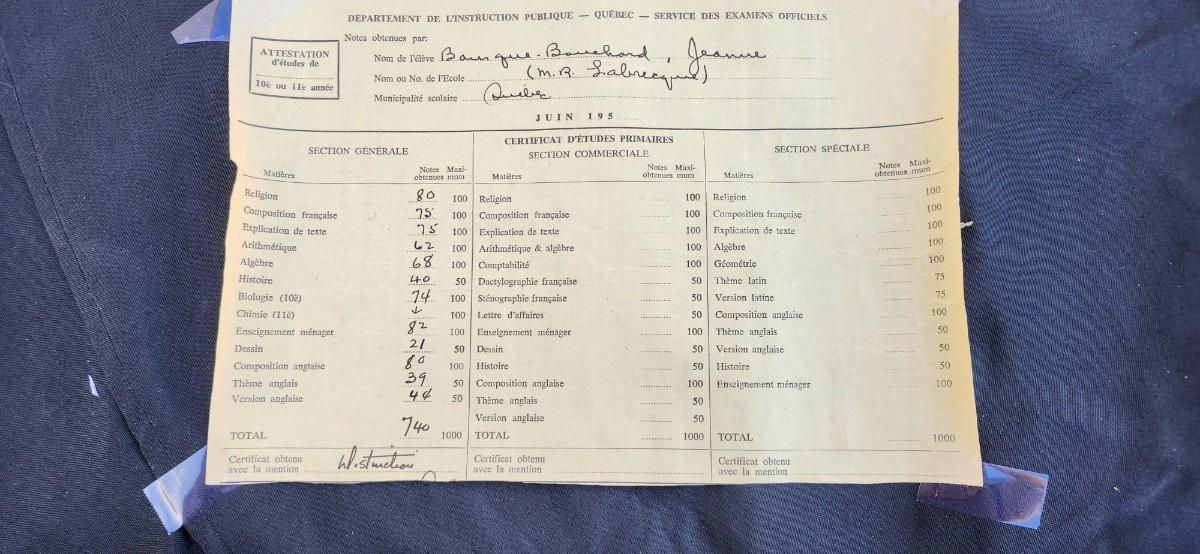 DÉPARTEMENT DE L'INSTRUCTION PUBLIQUE — QUÉBEC — SERVICE DES EXAMENS OFFICIELS
ATTESTATION
d'études de
10è ou 11è année
Notes obtenues par:
Nom de l'élève Bouchard, Jeanne
Nom ou No. de l'Ecole (M.R. Labrecque)
Municipalité scolaire Québec
JUIN 195
SECTION GÉNÉRALE
Matières Notes obtenues Maxi-mum
Religion 80 100
Composition française 75 100
Explication de texte 75 100
Arithmétique 62 100
Algèbre 68 100
Histoire 40 50
Biologie (10è) 74 100
Chimie (11è) ↓ 100
Enseignement ménager 82 100
Dessin 21 50
Composition anglaise 80 100
Thème anglais 39 50
Version anglaise 44 50
TOTAL 740 1000
Certificat obtenu
avec la mention Distinction
CERTIFICAT D'ÉTUDES PRIMAIRES
SECTION COMMERCIALE
Matières Notes obtenues Maxi-mum
Religion 100
Composition française 100
Explication de texte 100
Arithmétique & algèbre 100
Comptabilité 100
Dactylographie française 50
Sténographie française 50
Lettre d'affaires 50
Enseignement ménager 100
Dessin 50
Histoire 50
Composition anglaise 100
Thème anglais 50
Version anglaise 50
TOTAL 1000
Certificat obtenu
avec la mention
SECTION SPÉCIALE
Matières Notes obtenues Maxi-mum
Religion 100
Composition française 100
Explication de texte 100
Algèbre 100
Géométrie 100
Thème latin 75
Version latine 75
Composition anglaise 100
Thème anglais 50
Version anglaise 50
Histoire 50
Enseignement ménager 100
TOTAL 1000
Certificat obtenu
avec la mention